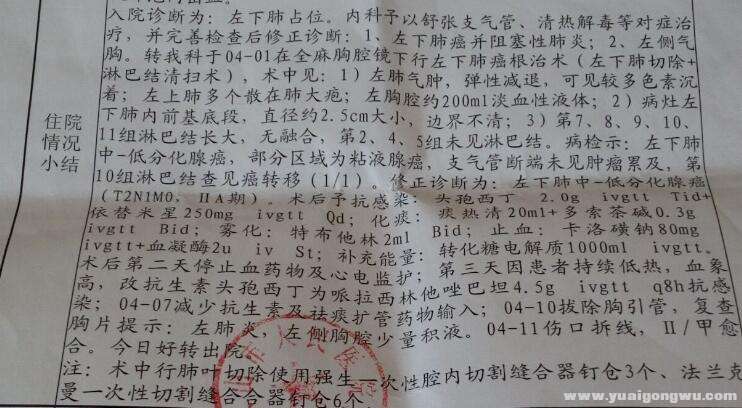 入院诊断为: 左下肺占位。内科予以舒张支气管、清热解毒等对症治
疗, 并完善检查后修正诊断: 1、左下肺癌并阻塞性肺炎; 2、左侧气
胸。转我科于04-01在全麻胸腔镜下行左下肺癌根治术 (左下肺切除+
淋巴结清扫术), 术中见: 1) 左肺气肿, 弹性减退, 可见较多色素沉
着; 左上肺多个散在肺大疱; 左胸腔约200ml淡血性液体; 2) 病灶左
下肺内前基底段, 直径约2.5cm大小, 边界不清; 3) 第7、8、9、10、
11组淋巴结长大, 无融合, 第2、4、5组未见淋巴结。病检示: 左下肺
中-低分化腺癌, 部分区域为粘液腺癌, 支气管断端未见肿瘤累及, 第
10组淋巴结查见癌转移 (1/1)。修正诊断为: 左下肺中-低分化腺癌
(T2N1M0, IIA期)。术后予抗感染: 头孢西丁 2.0g ivgtt Tid+
依替米星250mg ivgtt Qd; 化痰: 痰热清20ml+多索茶碱0.3g
ivgtt Bid; 雾化: 特布他林2ml Bid; 止血: 卡洛磺钠80mg
ivgtt+血凝酶2u iv St; 补充能量: 转化糖电解质1000ml ivgtt。
术后第二天停止血药物及心电监护; 第三天因患者持续低热, 血象
高, 改抗生素头孢西丁为哌拉西林他唑巴坦4.5g ivgtt q8h抗感
染; 04-07减少抗生素及祛痰扩管药物输入; 04-10拔除胸引管, 复查
胸片提示: 左肺炎, 左侧胸腔少量积液。04-11伤口拆线, II/甲愈
合。今日好转出院
注: 术中行肺叶切除使用强生一次性腔内切割缝合器钉仓3个、法兰克
曼一次性切割缝合合器钉仓6个
住院
情况
小结
www.yuaigongwu.com